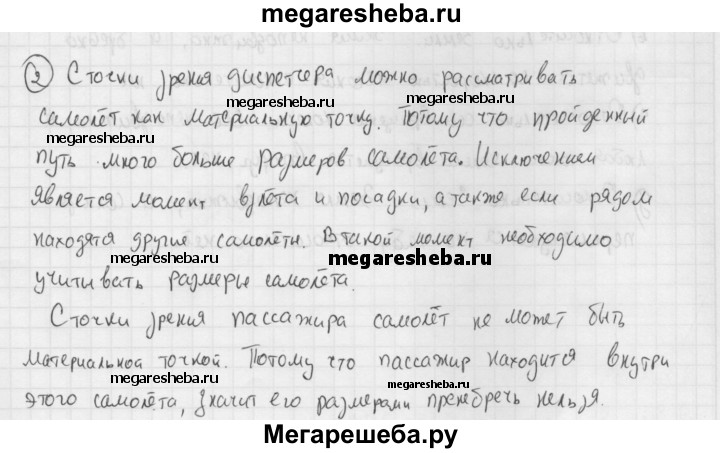 megaresheba.ru
2 С точки зрения диспетчера можно рассматривать
megaresheba.ru megaresheba.ru
самолёт как материальную точку. Потому что пройденный
megaresheba.ru
путь много больше размеров самолёта. Исключением
megaresheba.ru megaresheba.ru
является момент взлёта и посадки, а также если рядом
находятся другие самолёты. В такой момент необходимо
megaresheba.ru megaresheba.ru
учитывать размеры самолёта.
С точки зрения пассажира самолёт не может быть
материальной точкой. Потому что пассажир находится внутри
megaresheba.ru megaresheba.ru
этого самолёта, значит его размерами пренебречь нельзя.
Мегарешеба.ру